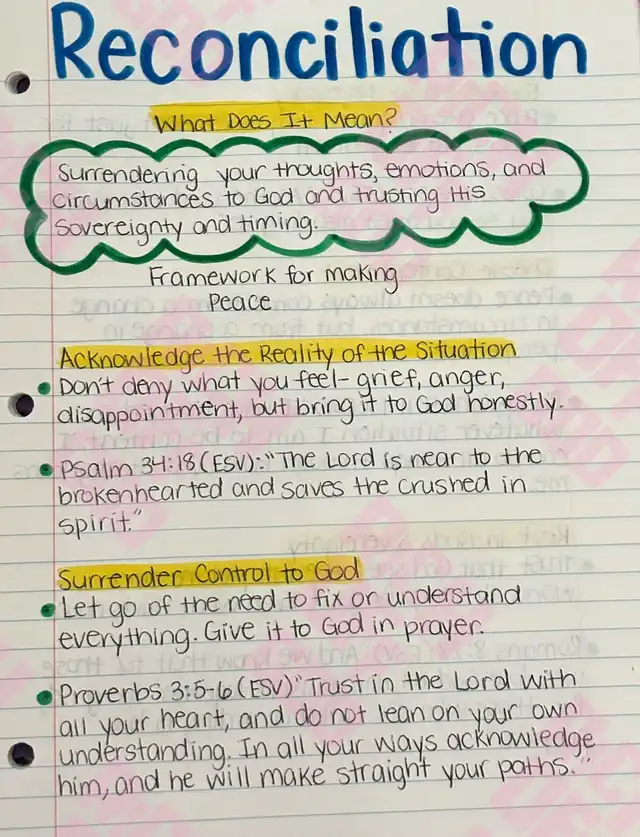 Reconciliation
What Does It Mean?
Surrendering your thoughts, emotions, and
circumstances to God and trusting His
Sovereignty and timing.
Framework for making
Peace
Acknowledge the Reality of the Situation
Don't deny what you feel- grief, anger,
disappointment, but bring it to God honestly.
Psalm 34:18 (ESV): "The Lord is near to the
brokenhearted and saves the crushed in
spirit."
Surrender Control to God
Let go of the need to fix or understand
everything. Give it to God in prayer.
Proverbs 3:5-6 (ESV) "Trust in the Lord with
all your heart, and do not lean on your own
understanding. In all your ways acknowledge
him, and he will make straight your paths."